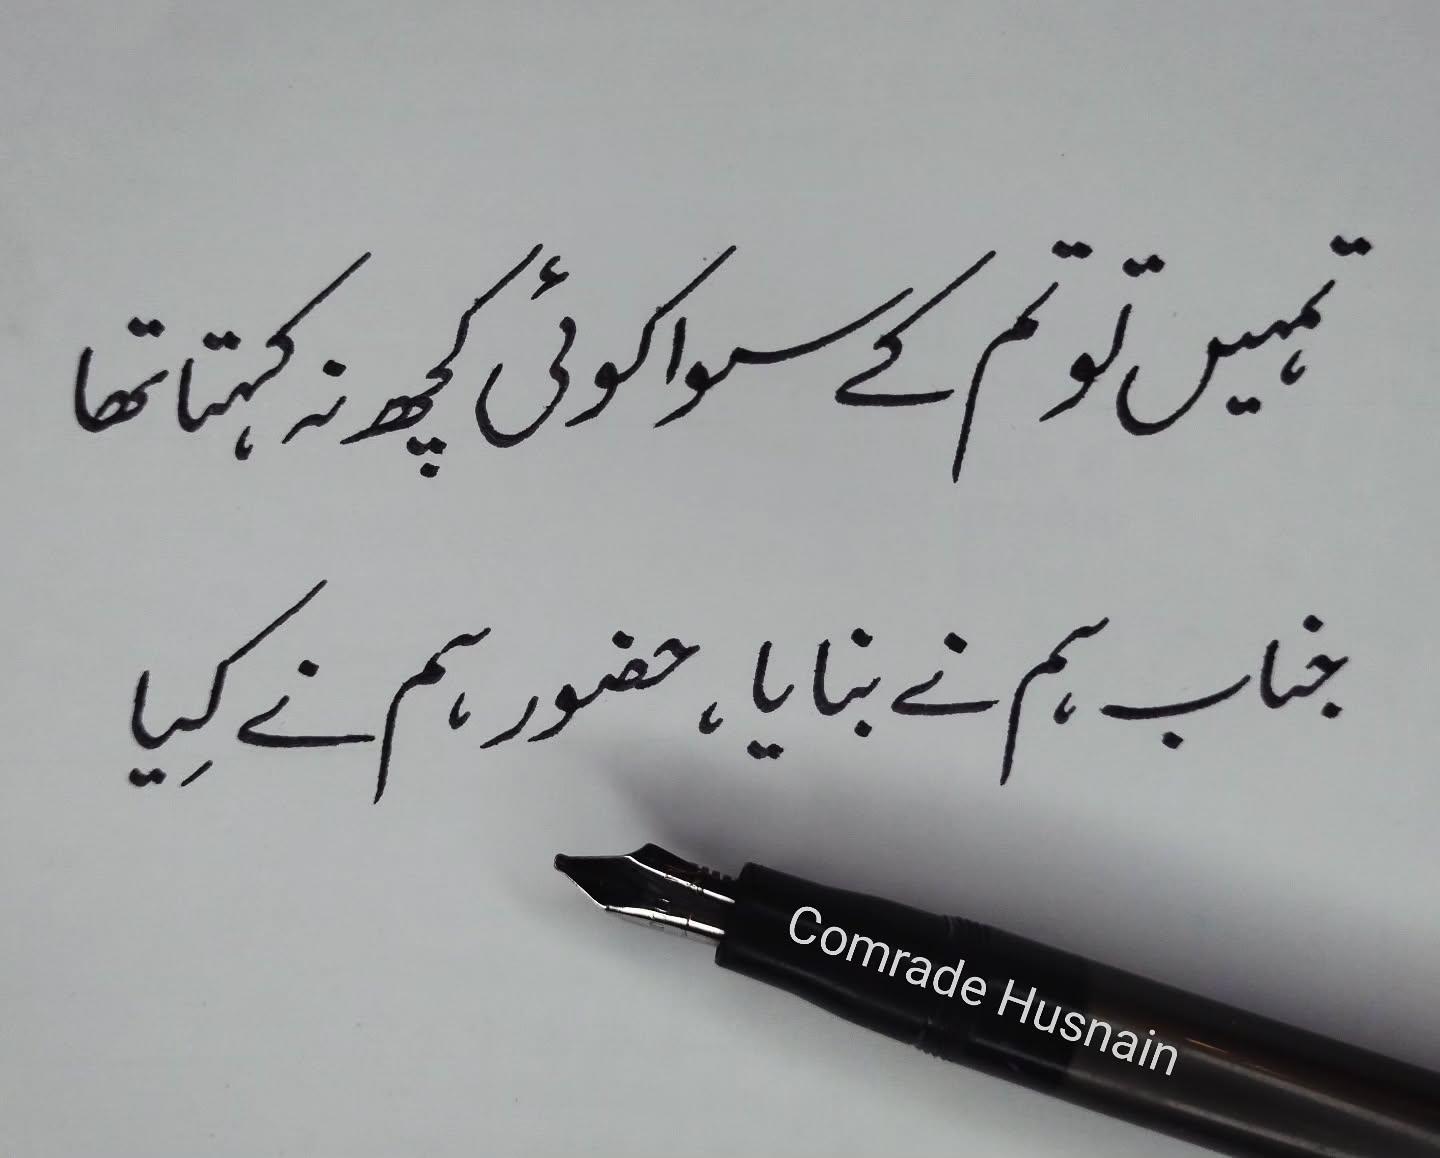 تمہیں تو تم کے سوا کوئی کچھ نہ کہتا تھا
جناب ہم نے بنایا، حضور ہم نے کِیا
Comrade Husnain